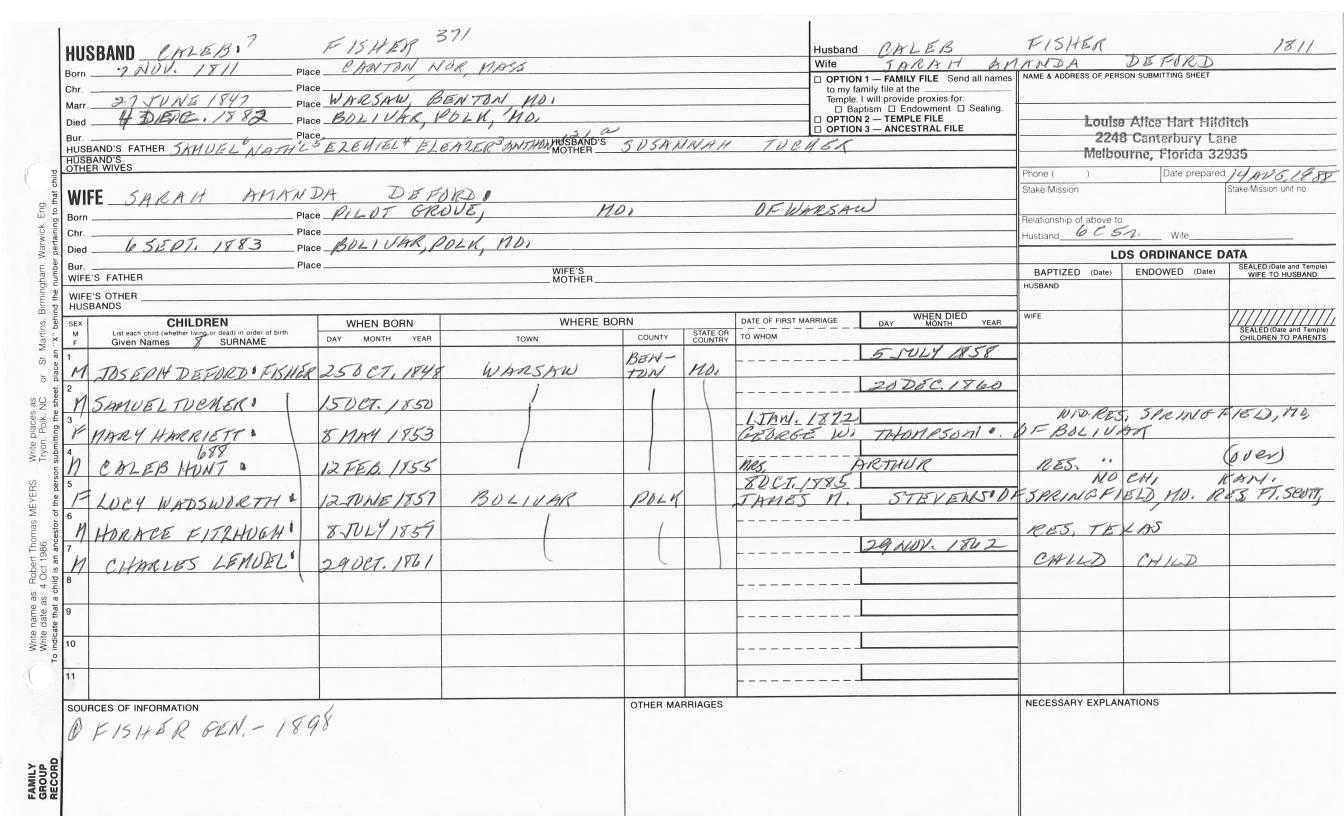 HUSBAND CALEB 7 FISHER 371
Born 7 NOV. 1811 Place CANTON, NOR, MASS
Chr. Place
Marr. 27 JUNE 1847 Place WARSAW, BENTON MO.
Died DEC. 1882 Place BOLIVAR, POLK, MO.
Bur. Place
HUSBAND'S FATHER SAMUEL 6 NATH'L 5 EZEKIEL 4 ELEAZER 3 HUSBAND'S MOTHER SUSANNAH TUCKER
HUSBAND'S OTHER WIVES
WIFE SARAH AMANDA DEFORD
Born Place PILOT GROVE, MO. OF WARSAW
Chr. Place
Died 6 SEPT. 1883 Place BOLIVAR, POLK, MO.
Bur. Place
WIFE'S FATHER WIFE'S MOTHER
WIFE'S OTHER HUSBANDS
Husband CALEB FISHER 1811
Wife SARAH AMANDA DEFORD
OPTION 1 — FAMILY FILE Send all names
to my family file at the
Temple. I will provide proxies for:
Baptism Endowment Sealing.
OPTION 2 — TEMPLE FILE
OPTION 3 — ANCESTRAL FILE
NAME & ADDRESS OF PERSON SUBMITTING SHEET
Louise Alice Hart Hilditch
2248 Canterbury Lane
Melbourne, Florida 32935
Phone ( ) Date prepared 14 AUG. 1988
Stake/Mission Stake/Mission unit no.
Relationship of above to
Husband 6C5r. Wife
LDS ORDINANCE DATA
BAPTIZED (Date) ENDOWED (Date) SEALED (Date and Temple) WIFE TO HUSBAND
HUSBAND
WIFE
SEALED (Date and Temple) CHILDREN TO PARENTS
SEX M F CHILDREN WHEN BORN WHERE BORN DATE OF FIRST MARRIAGE WHEN DIED
List each child (whether living or dead) in order of birth
Given Names 8 SURNAME DAY MONTH YEAR TOWN COUNTY STATE OR COUNTRY TO WHOM DAY MONTH YEAR
1 M JOSEPH DEFORD FISHER 25 OCT. 1848 WARSAW BEN-TON MO. 5 JULY 1858
2 M SAMUEL TUCKER 15 OCT. 1850 20 DEC. 1860
3 F MARY HARRIETT 8 MAY 1853 1 JAN. 1872 WID. RES. SPRINGFIELD, MO,
GEORGE W. THOMPSON OF BOLIVAR
4 M CALEB HUNT 688 12 FEB. 1855 MRS. ARTHUR RES. " (over)
5 F LUCY WADSWORTH 12 JUNE 1857 BOLIVAR POLK 8 OCT. 1885 NO CH, KAN.
JAMES M. STEVENS OF SPRINGFIELD, MO. RES FT. SCOTT,
6 M HORACE FITZHUGH 8 JULY 1859 RES. TEXAS
7 M CHARLES LEMUEL 29 OCT. 1861 29 NOV. 1862 CHILD CHILD
8
9
10
11
SOURCES OF INFORMATION OTHER MARRIAGES NECESSARY EXPLANATIONS
① FISHER GEN. - 1898
Write name as: Robert Thomas MEYERS Write places as Tryon, Polk, NC or St. Martins, Birmingham, Warwick, Eng.
Write date as: 4 Oct 1986
To indicate that a child is an ancestor of the person submitting the sheet, place an "X" behind the number pertaining to that child
FAMILY GROUP RECORD